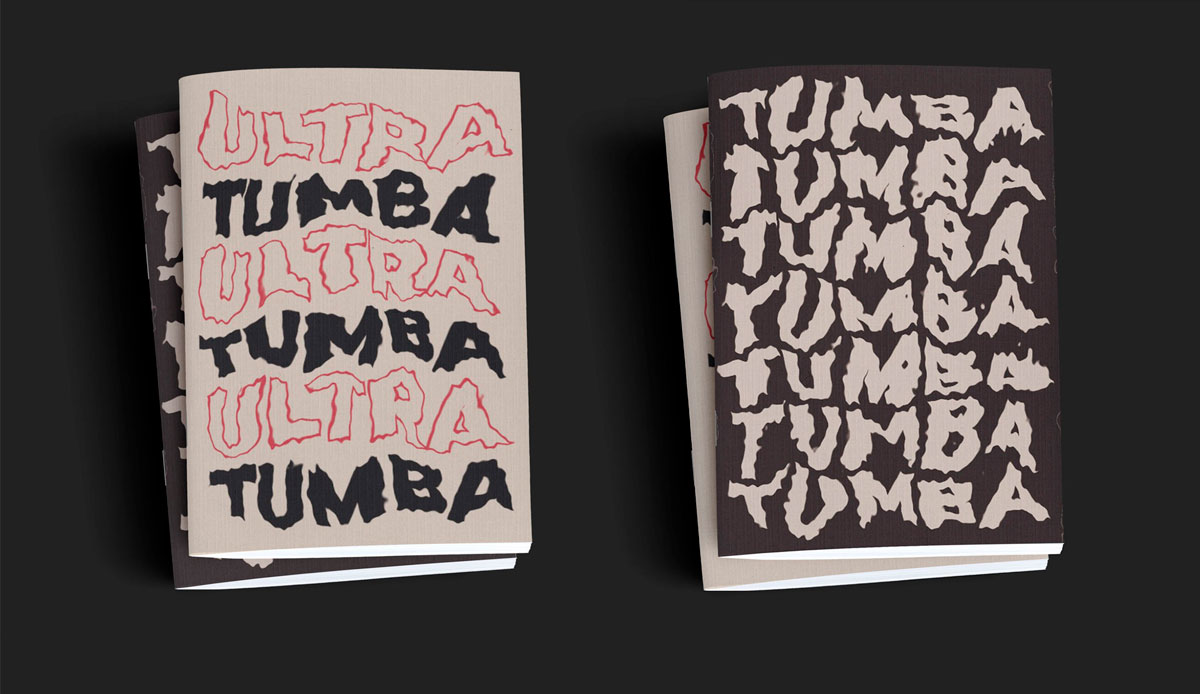 ULTRA
TUMBA
ULTRA
TUMBA
ULTRA
TUMBA
TUMBA
TUMBA
TUMBA
YUMBA
TUMBA
TUMBA
TUMBA